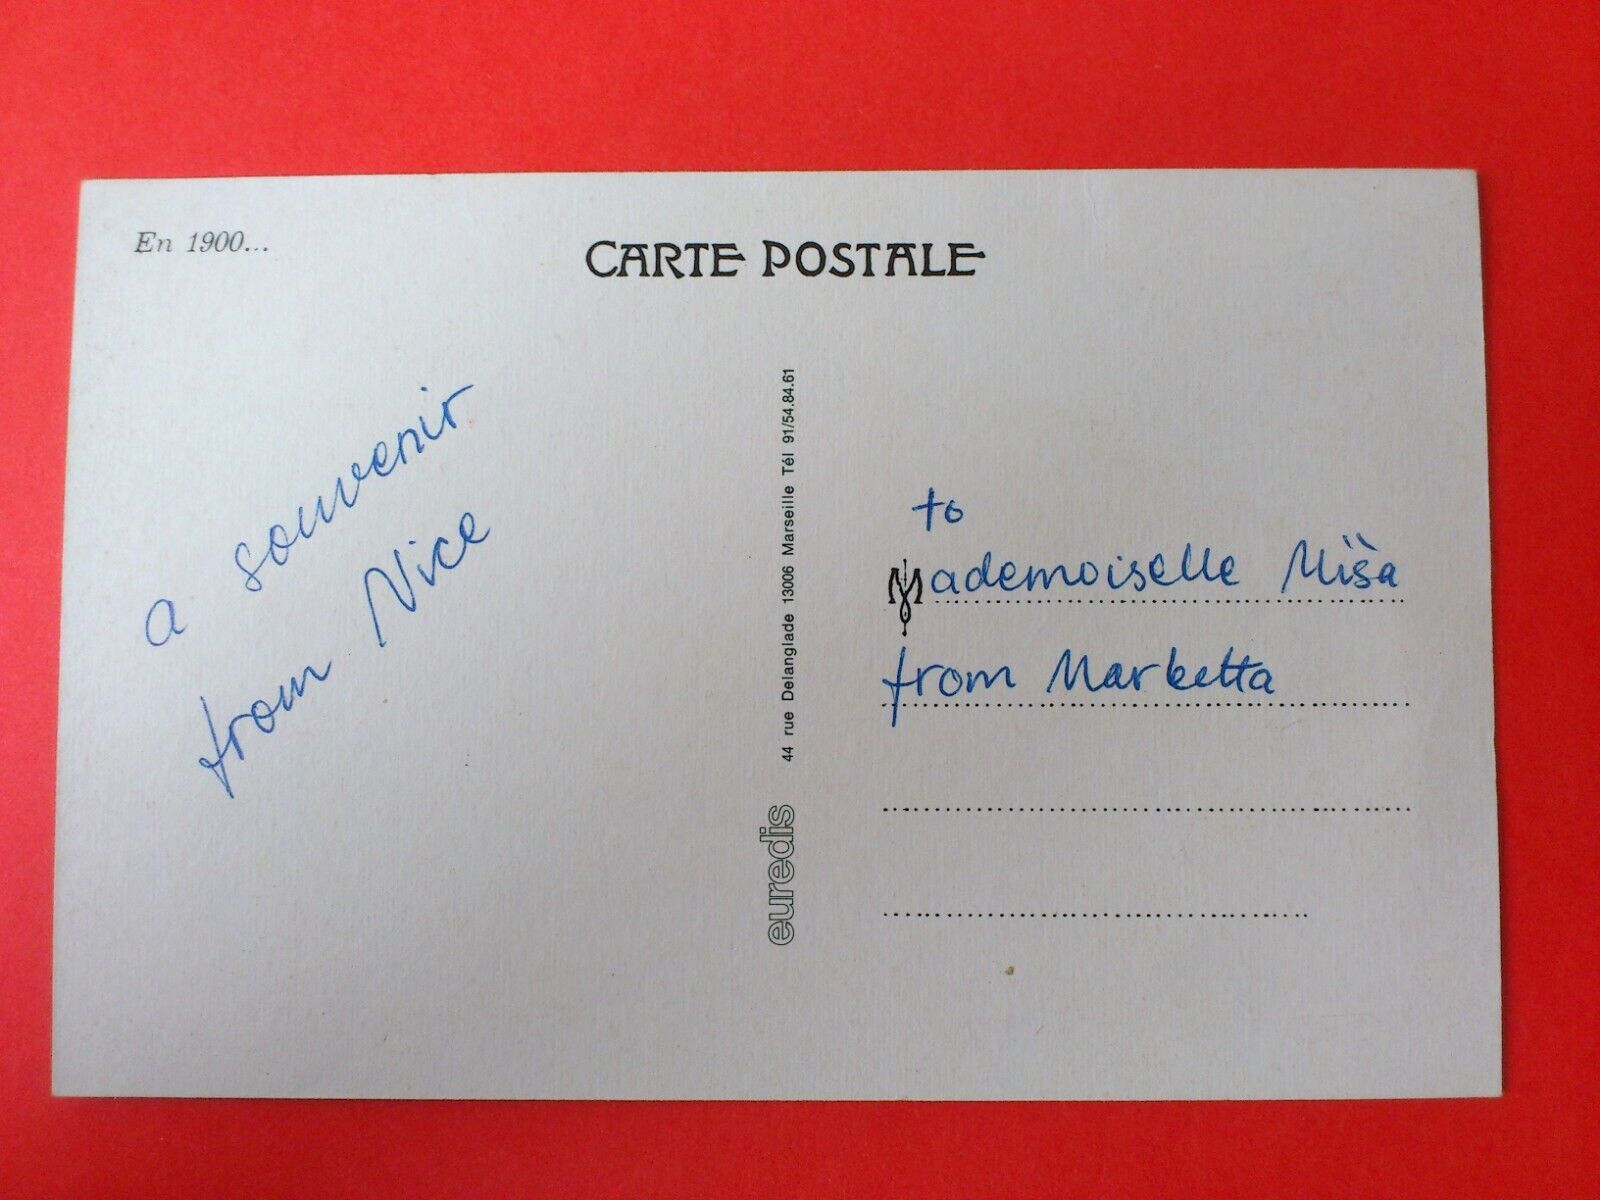 En 1900...
CARTE POSTALE
a souvenir
from Nice
euredis
44 rue Delanglade 13006 Marseille Tél 91/54.84.61
to
Mademoiselle Miša
from Marketta